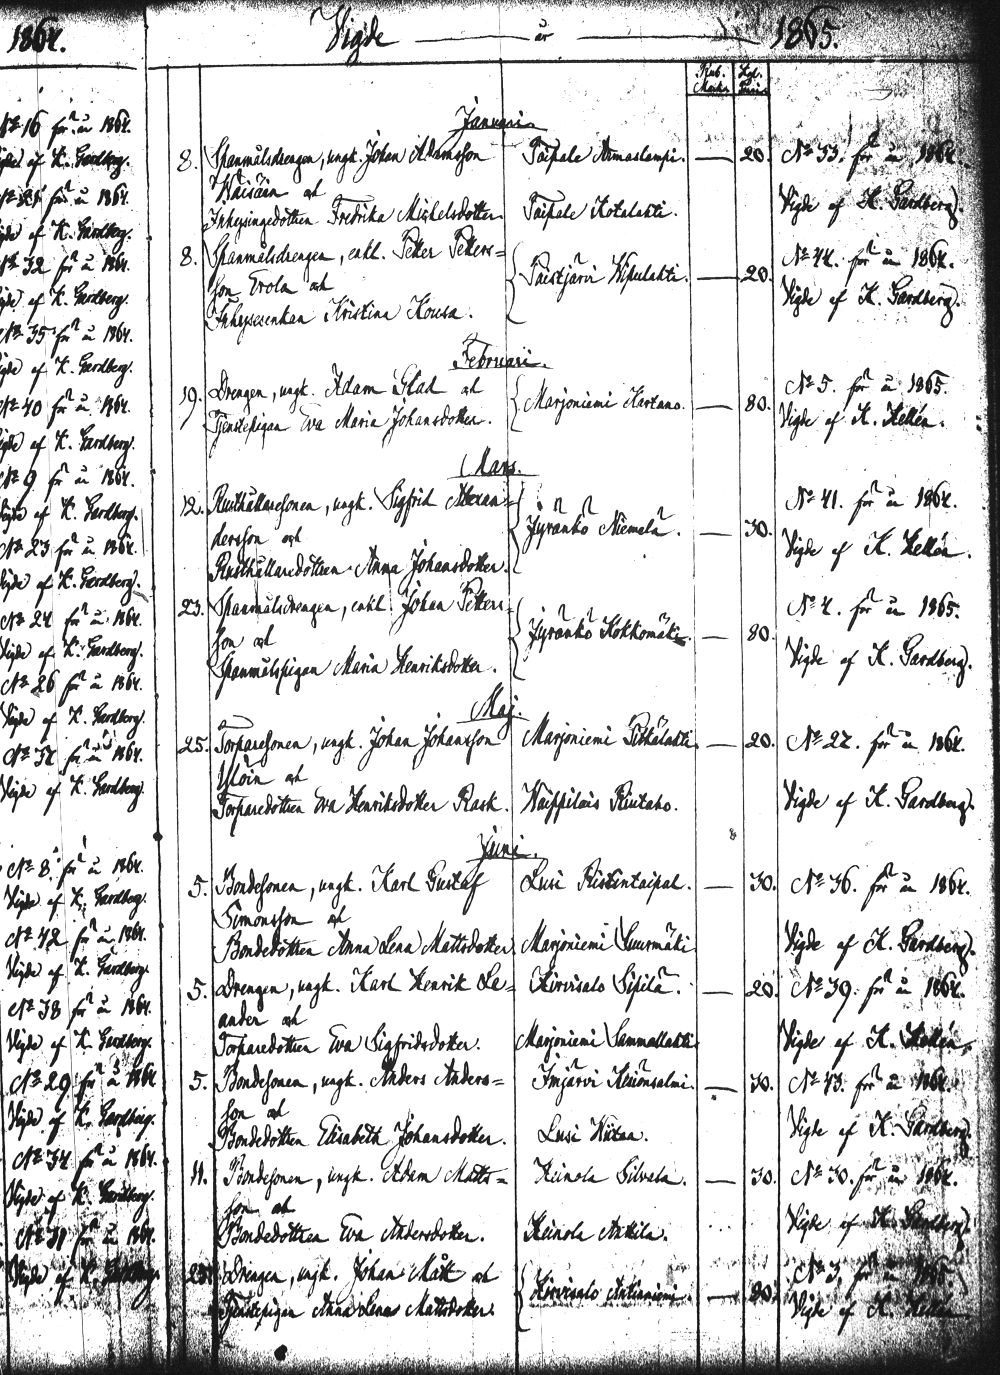 1864.
№ 16 för år 1864.
Vigde af K. Gardberg.
för år 1864.
Vigde af K. Gardberg.
№ 32 för år 1864.
Vigde af K. Gardberg.
№ 35 för år 1864.
Vigde af K. Gardberg.
№ 40 för år 1864.
Vigde af K. Gardberg.
№ 9 för år 1864.
Vigde af K. Gardberg.
№ 23 för år 1864.
Vigde af K. Gardberg.
№ 24 för år 1864.
Vigde af K. Gardberg.
№ 26 för år 1864.
Vigde af K. Gardberg.
№ 37 för år 1864.
Vigde af K. Gardberg.
№ 8 för år 1864.
Vigde af K. Gardberg.
№ 42 för år 1864.
Vigde af K. Gardberg.
№ 38 för år 1864.
Vigde af K. Gardberg.
№ 29 för år 1864
Vigde af K. Gardberg.
№ 34 för år 1864.
Vigde af K. Gardberg.
№ 31 för år 1864.
Vigde af K. Gardberg.
Vigde — år — 1865.
Rub. Mark.
Januari.
8. Spanmålsdrengen, ungk. Johan Adamsson Taipale Armaslampi. — 20. № 33. för år 1864.
Väisäin och
Inhysingedottren Fredrika Michelsdotter. Taipale Kotalahti. Vigde af K. Gardberg.
8. Spanmålsdrengen, enkl. Petter Petters= № 44. för år 1864.
son Erola och Paistjärvi Vipulahti. — 20. Vigde af K. Gardberg.
Inhysesenkan Kristina Kousa.
Februari.
19. Drengen, ungk. Adam Glad och № 5. för år 1865.
Tjenstepigan Eva Maria Johansdotter. Marjoniemi Hartano. — 80. Vigde af K. Hellén.
Mars.
12. Rusthållaresonen, ungk. Sigfrid Alexan= № 41. för år 1864.
dersson och Jyränkö Niemelä. — 30.
Rusthållaredottren Anna Johansdotter. Vigde af K. Hellén.
23. Spanmålsdrengen, enkl. Johan Petters= № 4. för år 1865.
son och Jyränkö Kokkomäki. — 80.
Spanmålspigan Maria Henriksdotter. Vigde af K. Gardberg.
Maj.
25. Torparesonen, ungk. Johan Johansson Marjoniemi Pitkälahti. — 20. № 27. för år 1864.
Ylöin och
Torparedottren Eva Henriksdotter Rask. Vaippilais Rautaho. Vigde af K. Gardberg.
Juni.
5. Bondesonen, ungk. Karl Gustaf Lusi Ristintaipal. — 30. № 36. för år 1864.
Simonsson och
Bondedottren Anna Lena Mattsdotter. Marjoniemi Suurmäki Vigde af K. Gardberg.
5. Drengen, ungk. Karl Henrik Le= Hirvisalo Sipilä. — 20. № 39. för år 1864.
ander och
Torparedottren Eva Sigfridsdotter. Marjoniemi Sammallahti Vigde af K. Hellén.
5. Bondesonen, ungk. Anders Anders= Imjärvi — 30. № 43. för år 1864.
son och
Bondedottren Elisabeth Johansdotter. Lusi Vigde af K. Gardberg.
11. Bondesonen, ungk. Adam Matts= Heinola Silvala. — 30. № 30. för år 1864.
son och
Bondedottren Eva Andersdotter. Heinola Anttila. Vigde af K. Gardberg.
Drengen, ungk. Johan Mått och № 3. för år 1865
Tjenstepigan Anna Lena Mattsdotter. Hirvisalo Anttinniemi. — 20. Vigde af K. Hellén